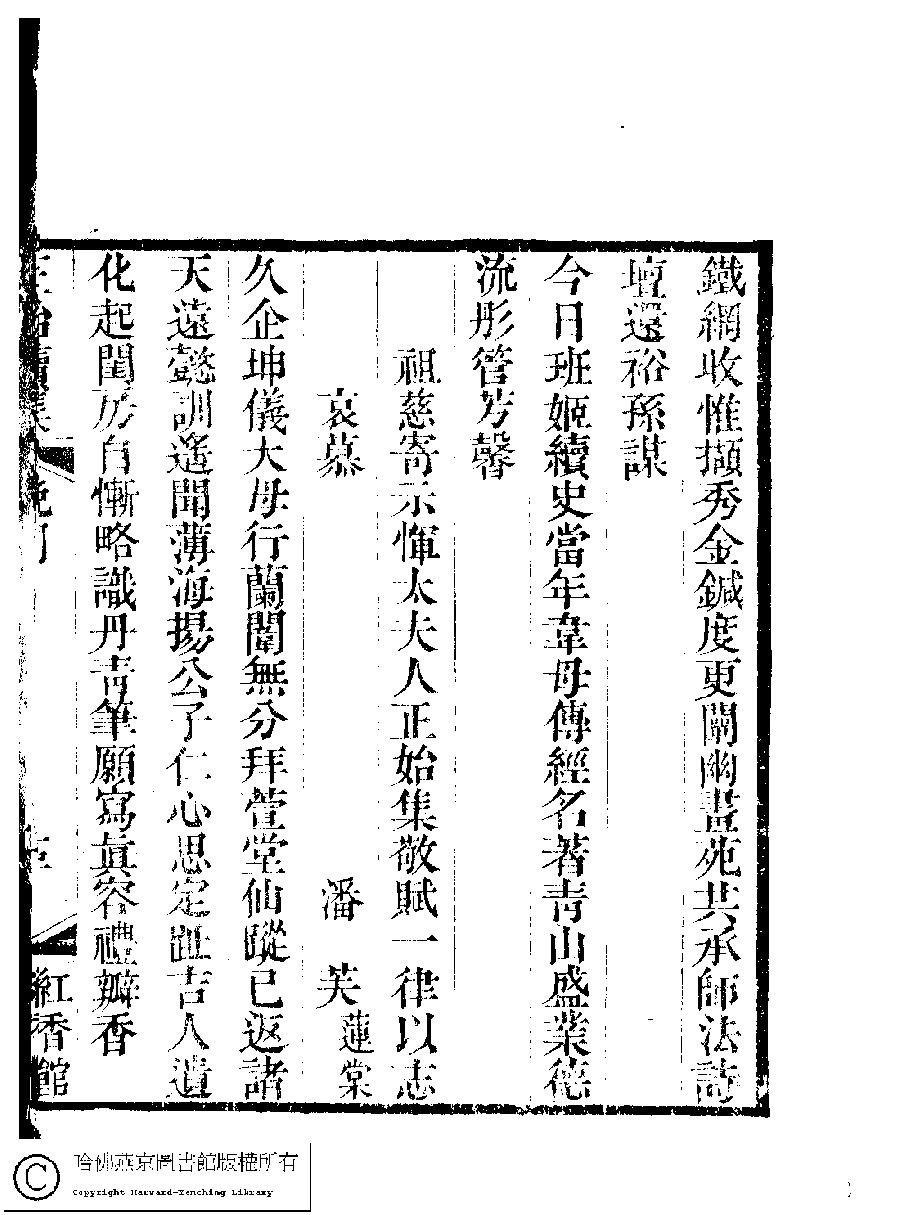 鐵網收惟擷秀金鍼度更闡幽畫苑共承師法詩
壇還裕孫謀
今日班姬續史當年韋母傳經名著青山盛業德
流彤管芳馨
祖慈寄示惲太夫人正始集敬賦一律以志
哀慕
潘芙蓮棠
久企坤儀大母行蘭闈無分拜萱堂仙蹤已返諸
天遠懿訓遙聞薄海揚公子仁心思定趾吉人遺
化起閨房自慚略識丹青筆願寫眞容禮瓣香
正始續集
紅香館
哈佛燕京圖書館版權所有
Copyright Harvard-Yenching Library